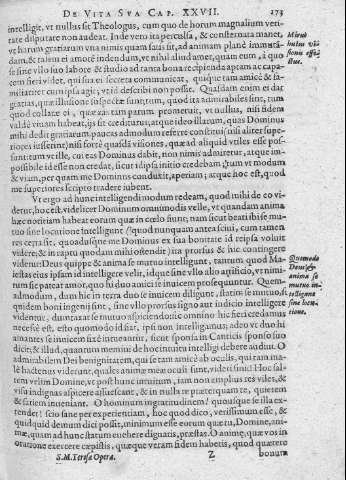 DE VITA SVA CAP. XXVII. 273
intelligit, vt nullus sit Theologus, cum quo de horum magnalium veri-
tate disputare non audeat. Inde vero ita perculsa, & consternata manet,
vt harum gratiarum vna nimis quam satis sit, ad animam planè immutã-
dam, & talem ei amorẽ indendum, vt nihil aliud amet, quam eum, à quo
se sine vllo suo labore & studio ad tanta bona recipienda aptam ac capa-
cem fieri videt, qui sua ei secreta communicat, quique tam amicè & fa-
miliariter cum ipsa agit; vt id describi non possit. Quasdam enim ei dat
gratias, quæ illusione suspectæ sunt, tum, quod ita admirabiles sint, tum
quod collatæ ei, quæ eas tam parum promeruit, vt nullus, nisi fidem
valdè viuam habeat, iis sit crediturus; atque ideo illarum, quas Dominus
mihi dedit gratiarum, paucas admodum referre constitui (nisi aliter supe-
riores iusserint) nisi fortè quasdã visiones, quæ ad aliquid vtiles esse pos-
sunt: tum vt ille, cui eas Dominus dabit, non nimis admiretur, atque im-
possibile id esse non credat, sicut id ipsa initio credebam; tum vt modum
& viam, per quam me Dominus conduxit, aperiam; atque hoc est, quod
me superiores scripto tradere iubent.
Vt ergo ad hunc intelligendi modum redeam, quod mihi de eo vi-
detur, hoc est, videlicet Dominum omnimodis velle, vt quandam anima
hæc notitiam habeat eorum quæ in cœlo fiunt; nam sicut beati ibi se mu-
tuo sine locutione intelligunt (quod nunquam antea sciui, cum tamen
res certa sit, quoadusque Dominus ex sua bonitate id reipsa voluit
videre; & in raptu quodam mihi ostendit) ita prorsus & hic contingere
videtur: Deus quippe & anima se mutuo intelligunt, tantum, quod Ma-
iestas eius ipsam id intelligere velit, idque sine vllo alio artificio, vt nimi-
rum sic pateat amor, quo hi duo amici se inuicem prosequuntur. Quem-
admodum, dum hic in terra duo se inuicem diligunt, statim se mutuo, si
quidem boni ingenij sint, sine vllo prorsus signo aut iudicio intelligere
videntur, dum tantùm se mutuo aspiciendo: sic omnino hic fieri credamus
necesse est, esto quomodo id fiat, ipsi non intelligamus; adeo vt duo hi
amantes se inuicem fixè intueantur, sicut sponsa in Canticis sponso suo
dicit; & illud, quantum memini de hoc intuitu intelligi debere audiui. O
admirabilem Dei benignitatem, qui se tam amicè ab oculis, qui tam ma-
lè hactenus viderunt, quales animæ meæ oculi sunt, videri sinis! Hoc sal-
tem velim Domine, vt post hunc intuitum, iam non emplius res viles, &
visu indignas aspicere assuescant, & in nulla re præterquam te, quietem
& satiem inueniant. O hominum ingratitudinem! quousque se illa ex-
tendet? scio sanè per experientiam, hoc quod dico, verissimum esse, &
quidquid demum dici possit, minimum esse eorum quæ tu, Domine, ani-
mæ, quam ad hunc statum euehere dignaris, præstas. O animæ, quæ vos in
oratione exercere cœpistis, quæque veram fidem habetis, quod quærere
S.M. Teresæ Opera. Z bonum
Mirus
huius vi-
sionis effe-
ctus.
Quomodo
Deus &
anima se
mutuo in-
telligant
sine locu-
tione.